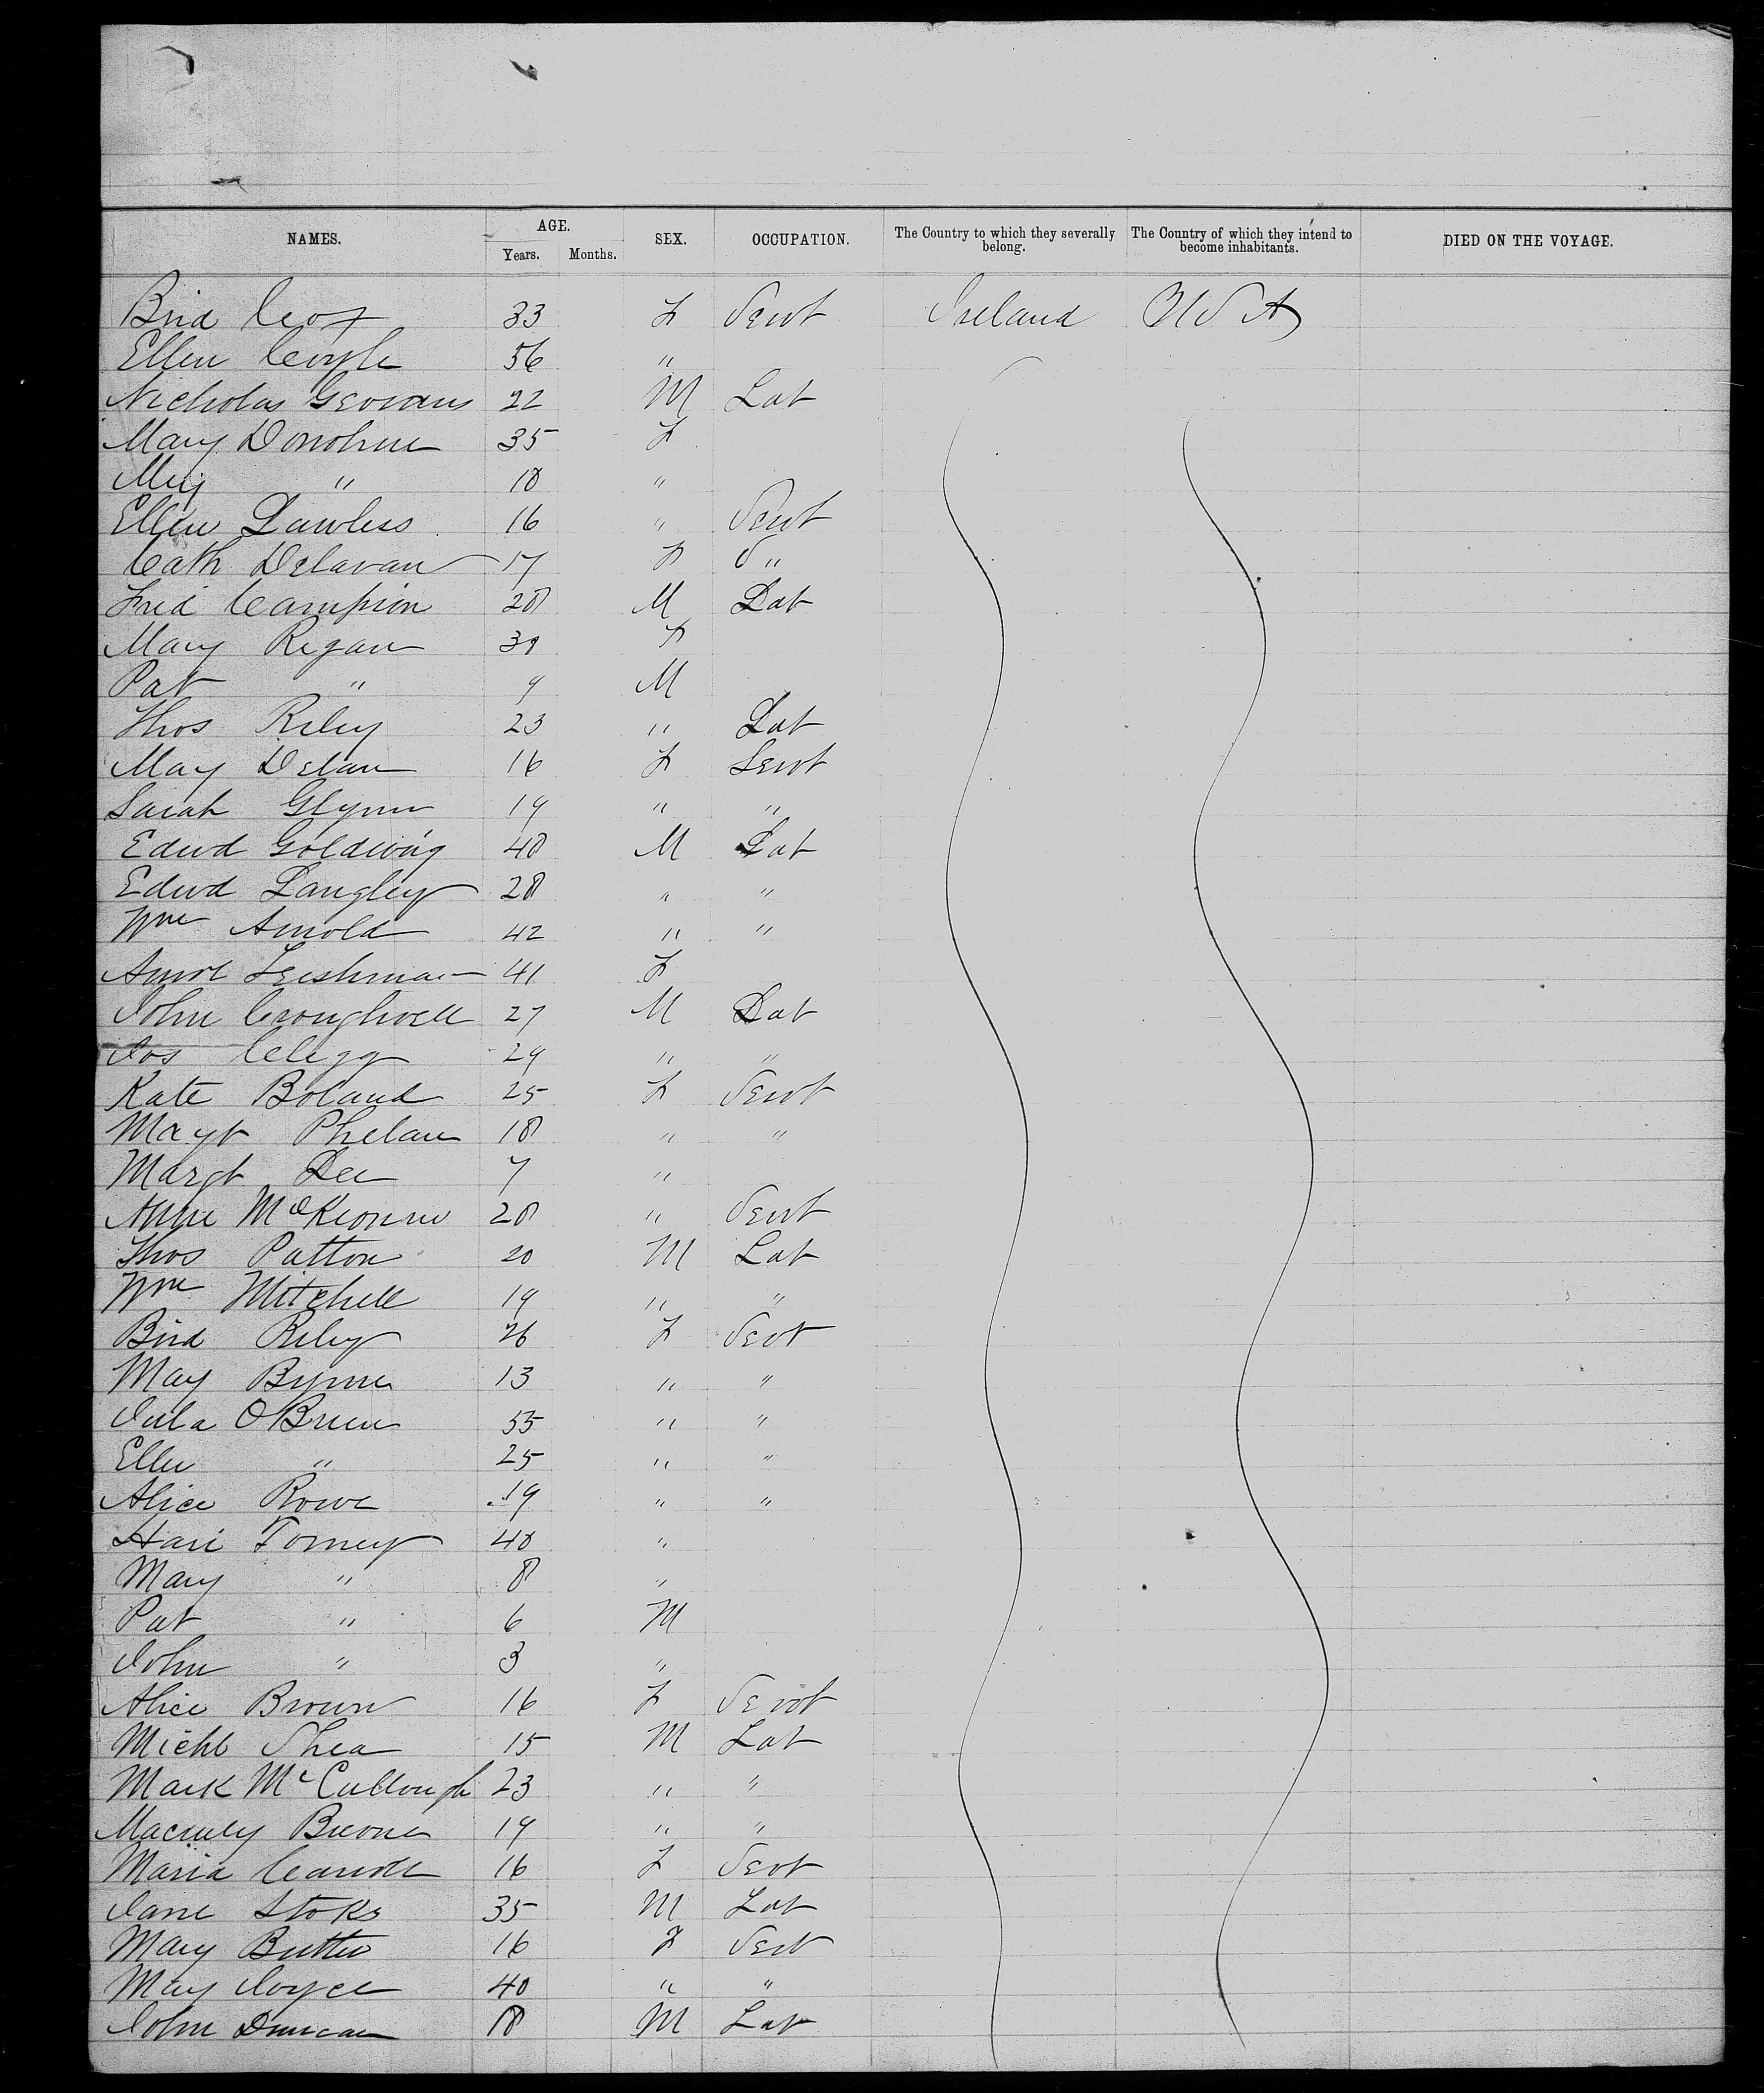 NAMES. AGE. Years. Months. SEX. OCCUPATION. The Country to which they severally belong. The Country of which they intend to become inhabitants. DIED ON THE VOYAGE.
Brid Cox 33 F Servt Ireland U S A
Ellen Coyle 56 "
Nicholas 22 M Lab
Mary Donohue 35 F
" 10 "
Ellen Lawless 16 " Servt
Cath Delavan 17 F S "
Fred Campion 20 M Lab
Mary Regan 30 F
Pat " 9 M
Thos Riley 23 " Lab
May Delan 16 F Servt
Sarah Glynn 19 " "
Edwd Golding 40 M Lab
Edwd Langley 28 " "
Wm Arnold 42 " "
Leishman 41 F
John Croughwell 27 M Lab
Jos Clegg 29 " "
Kate Boland 25 F Servt
Magt Phelan 18 " "
Margt Lee 7 "
Anne 20 " Servt
Thos Patton 20 M Lab
Wm Mitchell 19 " "
Brid Riley 26 F Servt
May Byrne 13 " "
Julia OBrien 55 " "
Ellen " 25 " "
Alice Rowe 19 " "
Torney 40 "
Mary " 8 "
Pat " 6 M
John " 3 "
Alice Brown 16 F Servt
Michl Shea 15 M Lab
Mark McCullough 23 " "
19 " "
Maria Carroll 16 F Servt
Jane Stoks 35 M Lab
Mary Butler 16 F Servt
May Joyce 40 " "
John Duncan 18 M Lab